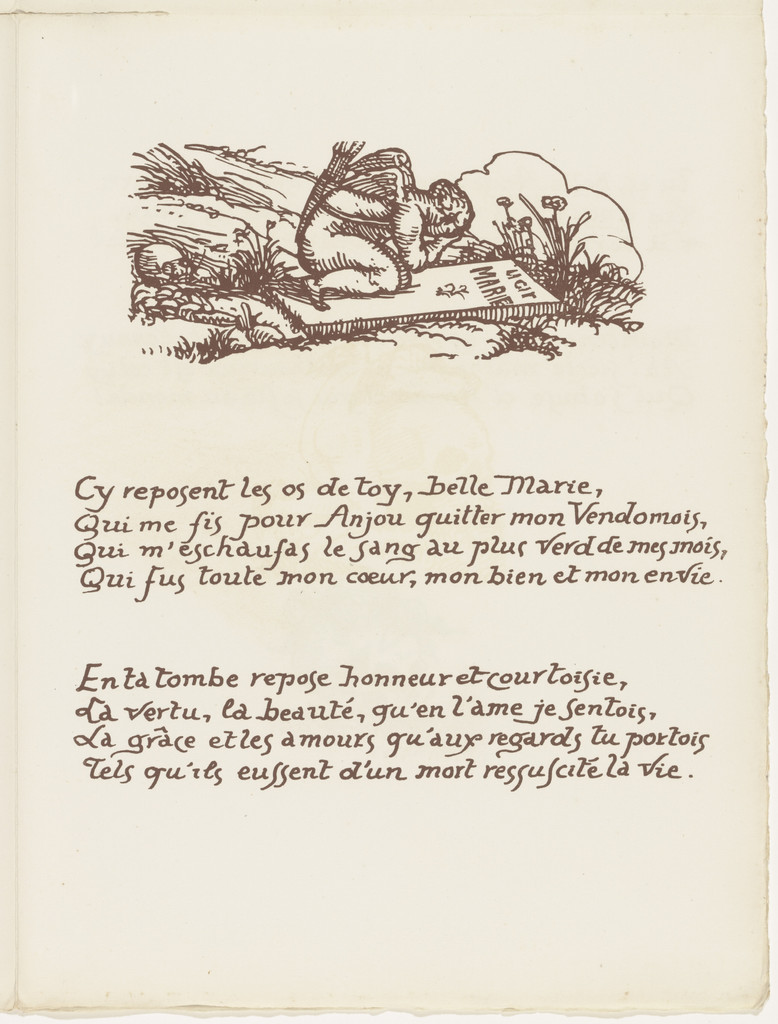 CI GIT
MARIE
Cy reposent les os de toy, belle Marie,
Qui me fis pour Anjou quitter mon Vendomois,
Qui m'eschaufas le sang au plus verd de mes mois,
Qui fus toute mon cœur, mon bien et mon envie.
En ta tombe repose honneur et courtoisie,
La vertu, la beauté, qu'en l'ame je sentois,
La grâce et les amours qu'aux regards tu portois
Tels qu'ils eussent d'un mort ressuscité la vie.